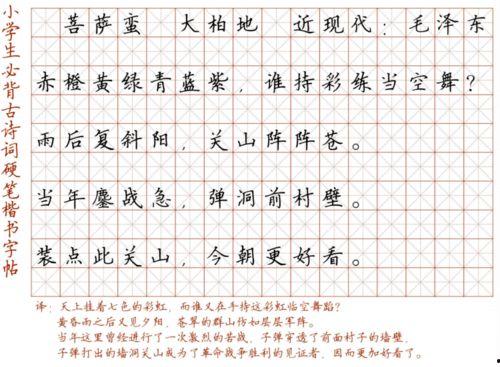 小学生必背古诗词硬笔楷书字帖
菩萨蛮 大柏地 近现代：毛泽东
赤橙黄绿青蓝紫，谁持彩练当空舞？
雨后复斜阳，关山阵阵苍。
当年鏖战急，弹洞前村壁。
装点此关山，今朝更好看。
译：天上挂着七色的彩虹，而谁又在手持这彩虹临空舞蹈？
黄昏雨之后又见夕阳，苍翠的群山仿如层层军阵。
当年这里曾经进行了一次激烈的苦战，子弹穿透了前面村子的墙壁，
子弹打出的墙洞关山成为了革命战争胜利的见证者，因而更加好看了。